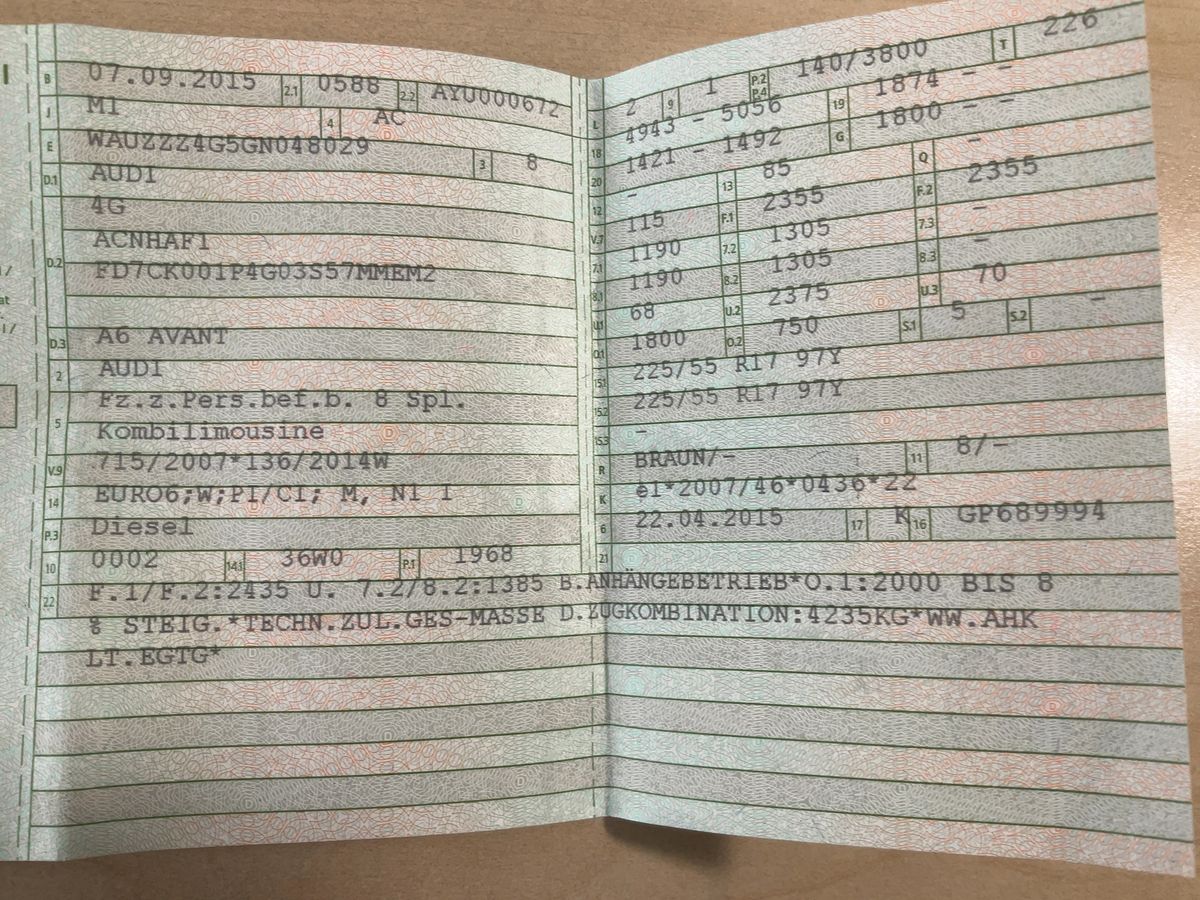 B 07.09.2015 2.1 0588 2.2 AYU000672
J M1 4 AC
E WAUZZZ4G5GN048029 3 8
D.1 AUDI
D.2 4G
ACNHAF1
FD7CK001P4G03S57MMEM2
D.3 A6 AVANT
2 AUDI
5 Fz.z.Pers.bef.b. 8 Spl.
Kombilimousine
V.9 715/2007*136/2014W
14 EURO6;W;PI/CI; M, N1 I
P.3 Diesel
10 0002 14.1 36W0 P.1 1968
L 2 9 1 P.2 P.4 140/3800 T 226
18 4943 - 5056 19 1874 - -
20 1421 - 1492 G 1800 - -
12 - 13 85 Q -
V.7 115 F.1 2355 F.2 2355
7.1 1190 7.2 1305 7.3 -
8.1 1190 8.2 1305 8.3 -
U.1 68 U.2 2375 U.3 70
O.1 1800 O.2 750 S.1 5 S.2 -
15.1 225/55 R17 97Y
15.2 225/55 R17 97Y
15.3 -
R BRAUN/- 11 8/-
K e1*2007/46*0436*22
6 22.04.2015 17 K 16 GP689994
21
22 F.1/F.2:2435 U. 7.2/8.2:1385 B.ANHÄNGEBETRIEB*O.1:2000 BIS 8
% STEIG.*TECHN.ZUL.GES-MASSE D.ZUGKOMBINATION:4235KG*WW.AHK
LT.EGTG*